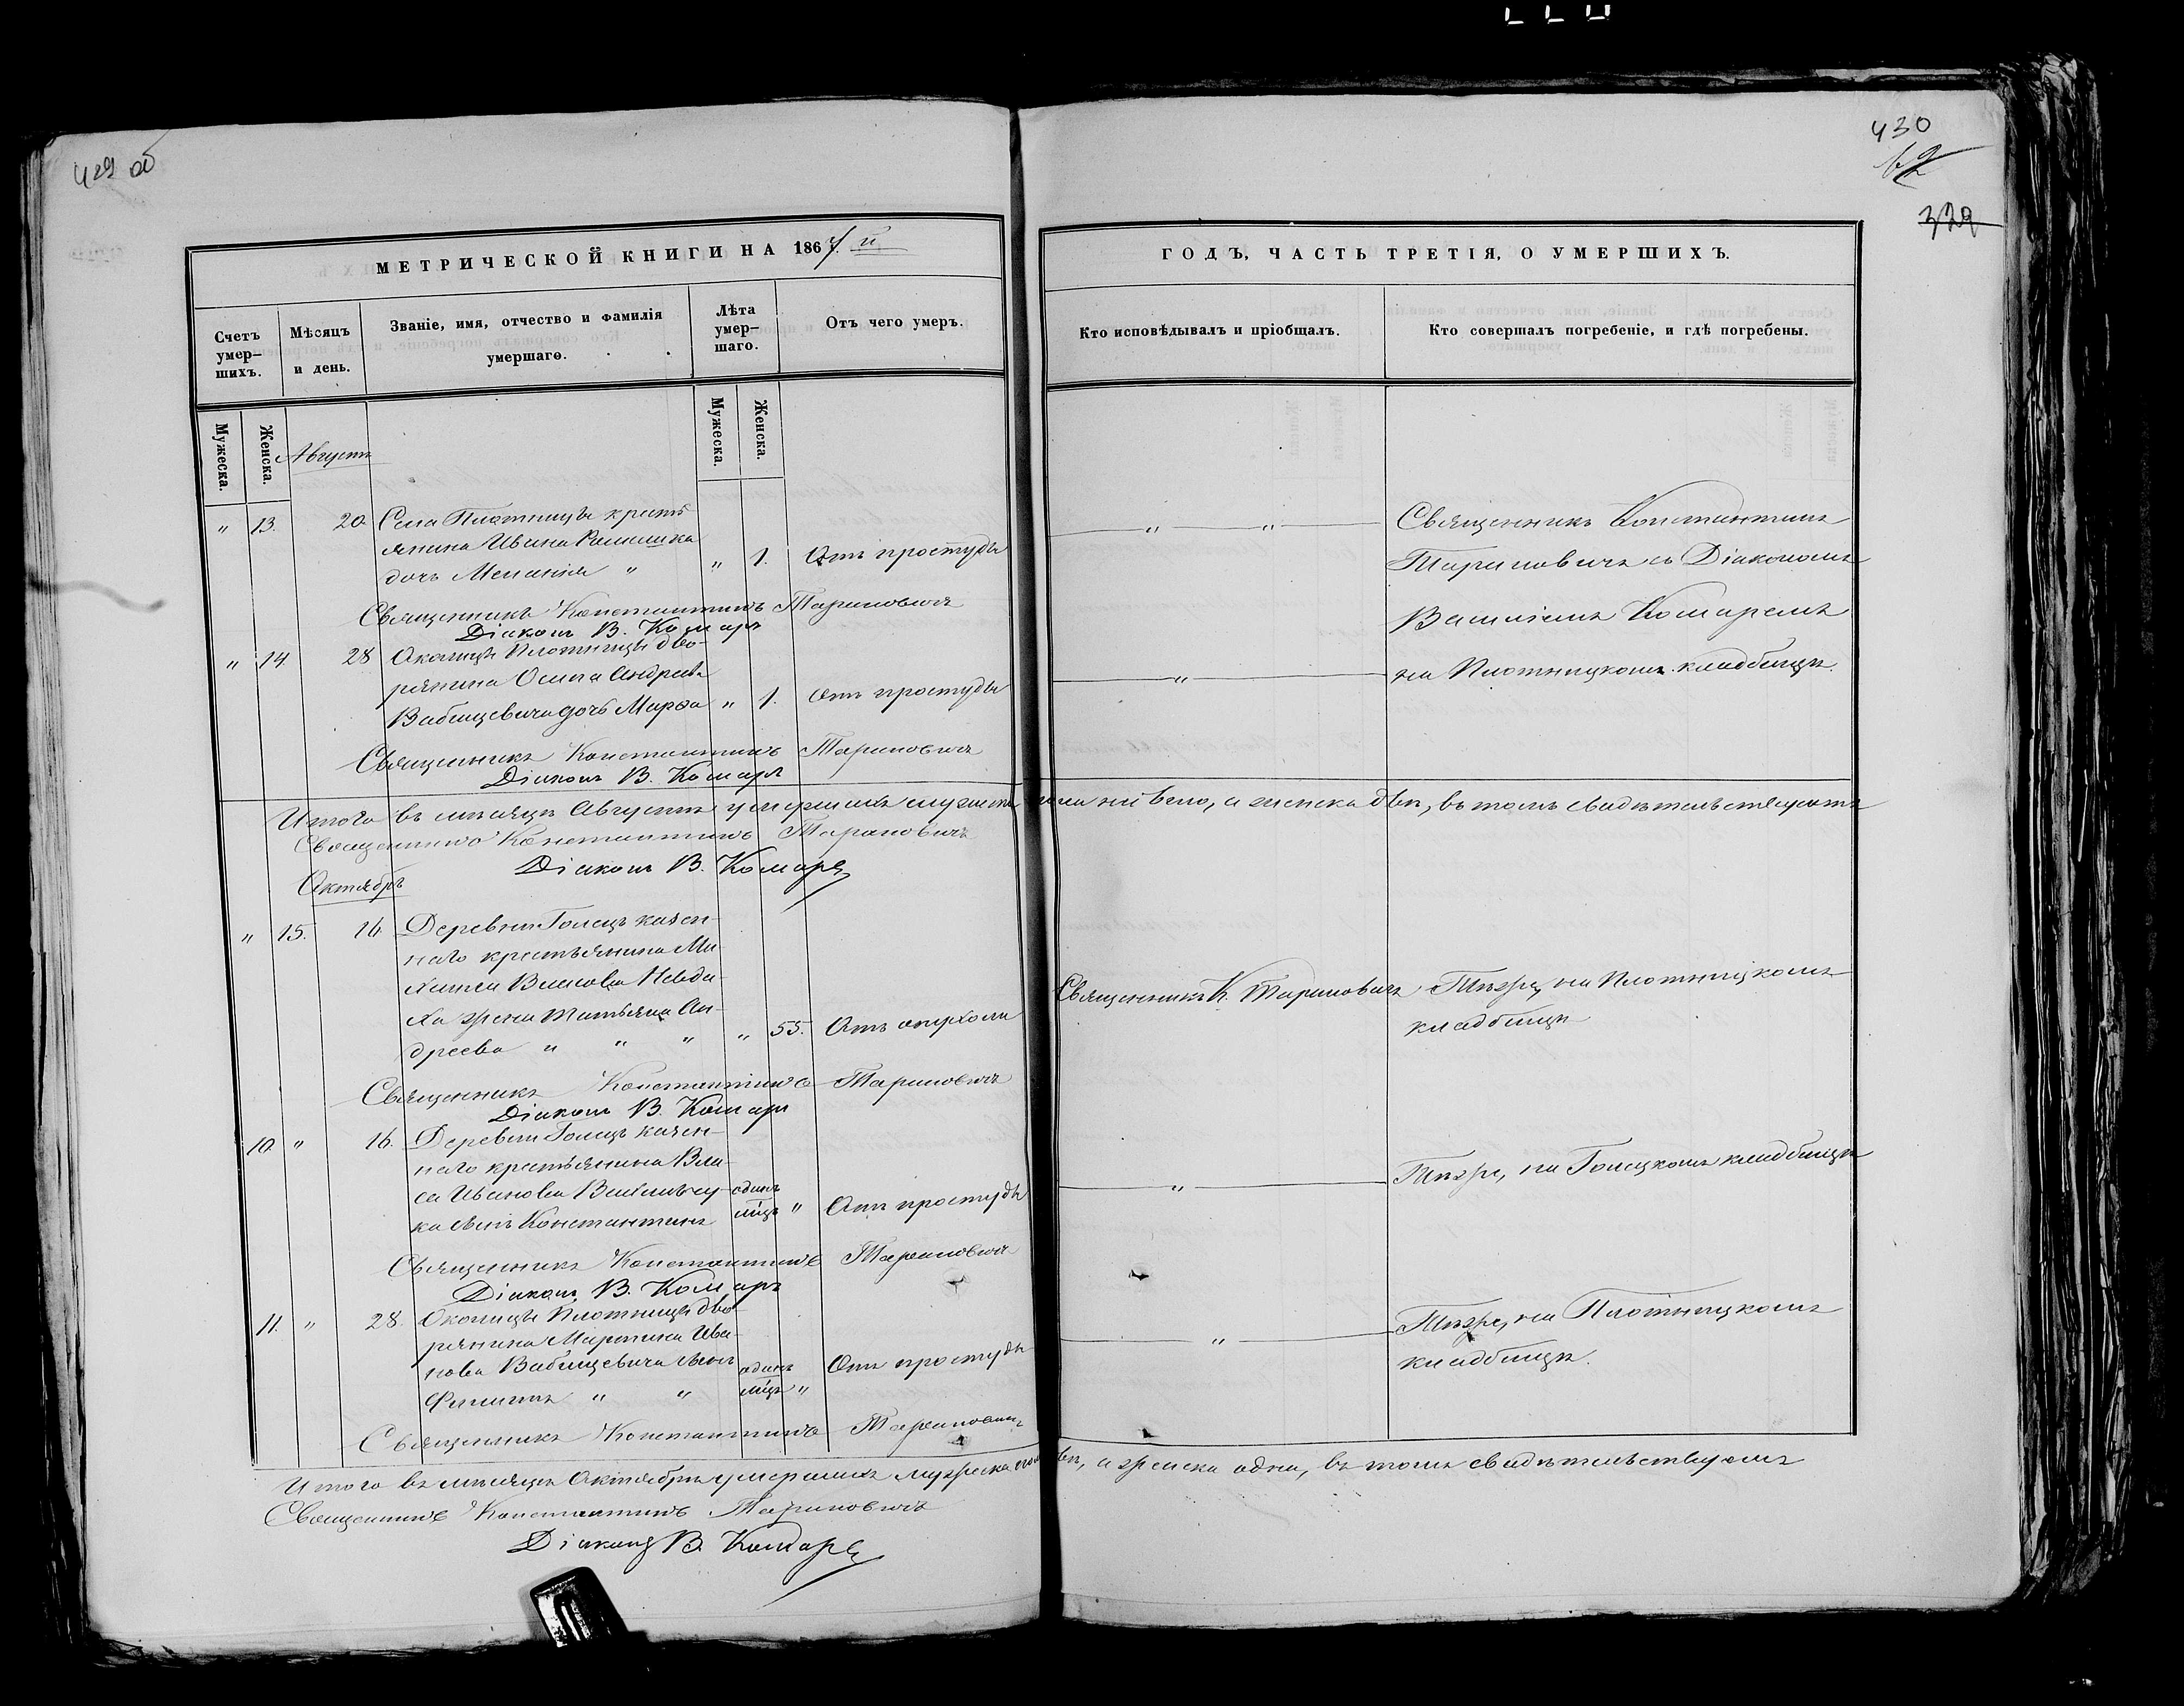 429 об
430
328
МЕТРИЧЕСКОЙ КНИГИ НА 1867 й
ГОДЪ, ЧАСТЬ ТРЕТІЯ, О УМЕРШИХЪ.
Счетъ умер-шихъ.
Мѣсяцъ и день.
Званіе, имя, отчество и фамилія умершаго.
Лѣта умер-шаго.
Отъ чего умеръ.
Кто исповѣдывалъ и пріобщалъ.
Кто совершалъ погребеніе, и гдѣ погребены.
Мужеска.
Женска.
Мужеска.
Женска.
Августъ
" 13. 20. Села Плотницы кресть
янина Ивана
дочь Меланія " " 1. Отъ простуды
" "
Священникъ Константинъ
Тариновичъ съ Діакономъ
Василіемъ Комаремъ
на Плотницкомъ кладбищѣ.
Священникъ Константинъ Тариновичъ
Діаконъ В. Комаръ
" 14 28 Околицы Плотницы дво-
рянина Осипа Андреева
Вабищевича дочь Марѳа " 1. Отъ простуды
"
Священникъ Константинъ Тариновичъ
Діаконъ В. Комаръ
Итого въ мѣсяцѣ Августѣ умершихъ мужеска пола не было, а женска двѣ, въ томъ свидѣтельствуютъ
Священникъ Константинъ Тариновичъ
Діаконъ В. Комаръ
Октябрь
" 15. 16. Деревни Голецъ казен-
наго крестьянина Ми-
хаила Власова Невда-
ха жена Татьяна Ан-
дреева " " " " 55. Отъ опухоли
Священникъ К. Тариновичъ
Тѣже, на Плотницкомъ
кладбищѣ
Священникъ Константинъ Тариновичъ
Діаконъ В. Комаръ
10. " 16. Деревни Голецъ казен-
наго крестьянина Вла-
са Иванова
ка сынъ Константинъ одинъ мѣцъ " Отъ простуды
"
Тѣже, на Голецкомъ кладбищѣ
Священникъ Константинъ Тариновичъ
Діаконъ В. Комаръ
11. " 28. Околицы Плотницы дво-
рянина Мартина Ива-
нова Вабищевича сынъ
Филиппъ " " одинъ мѣцъ " Отъ простуды
"
Тѣже, на Плотницкомъ
кладбищѣ.
Священникъ Константинъ Тариновичъ
Итого въ мѣсяцѣ Октябрѣ умершихъ мужеска два, а женска одна, въ томъ свидѣтельствуемъ
Священникъ Константинъ Тариновичъ
Діаконъ В. Комаръ